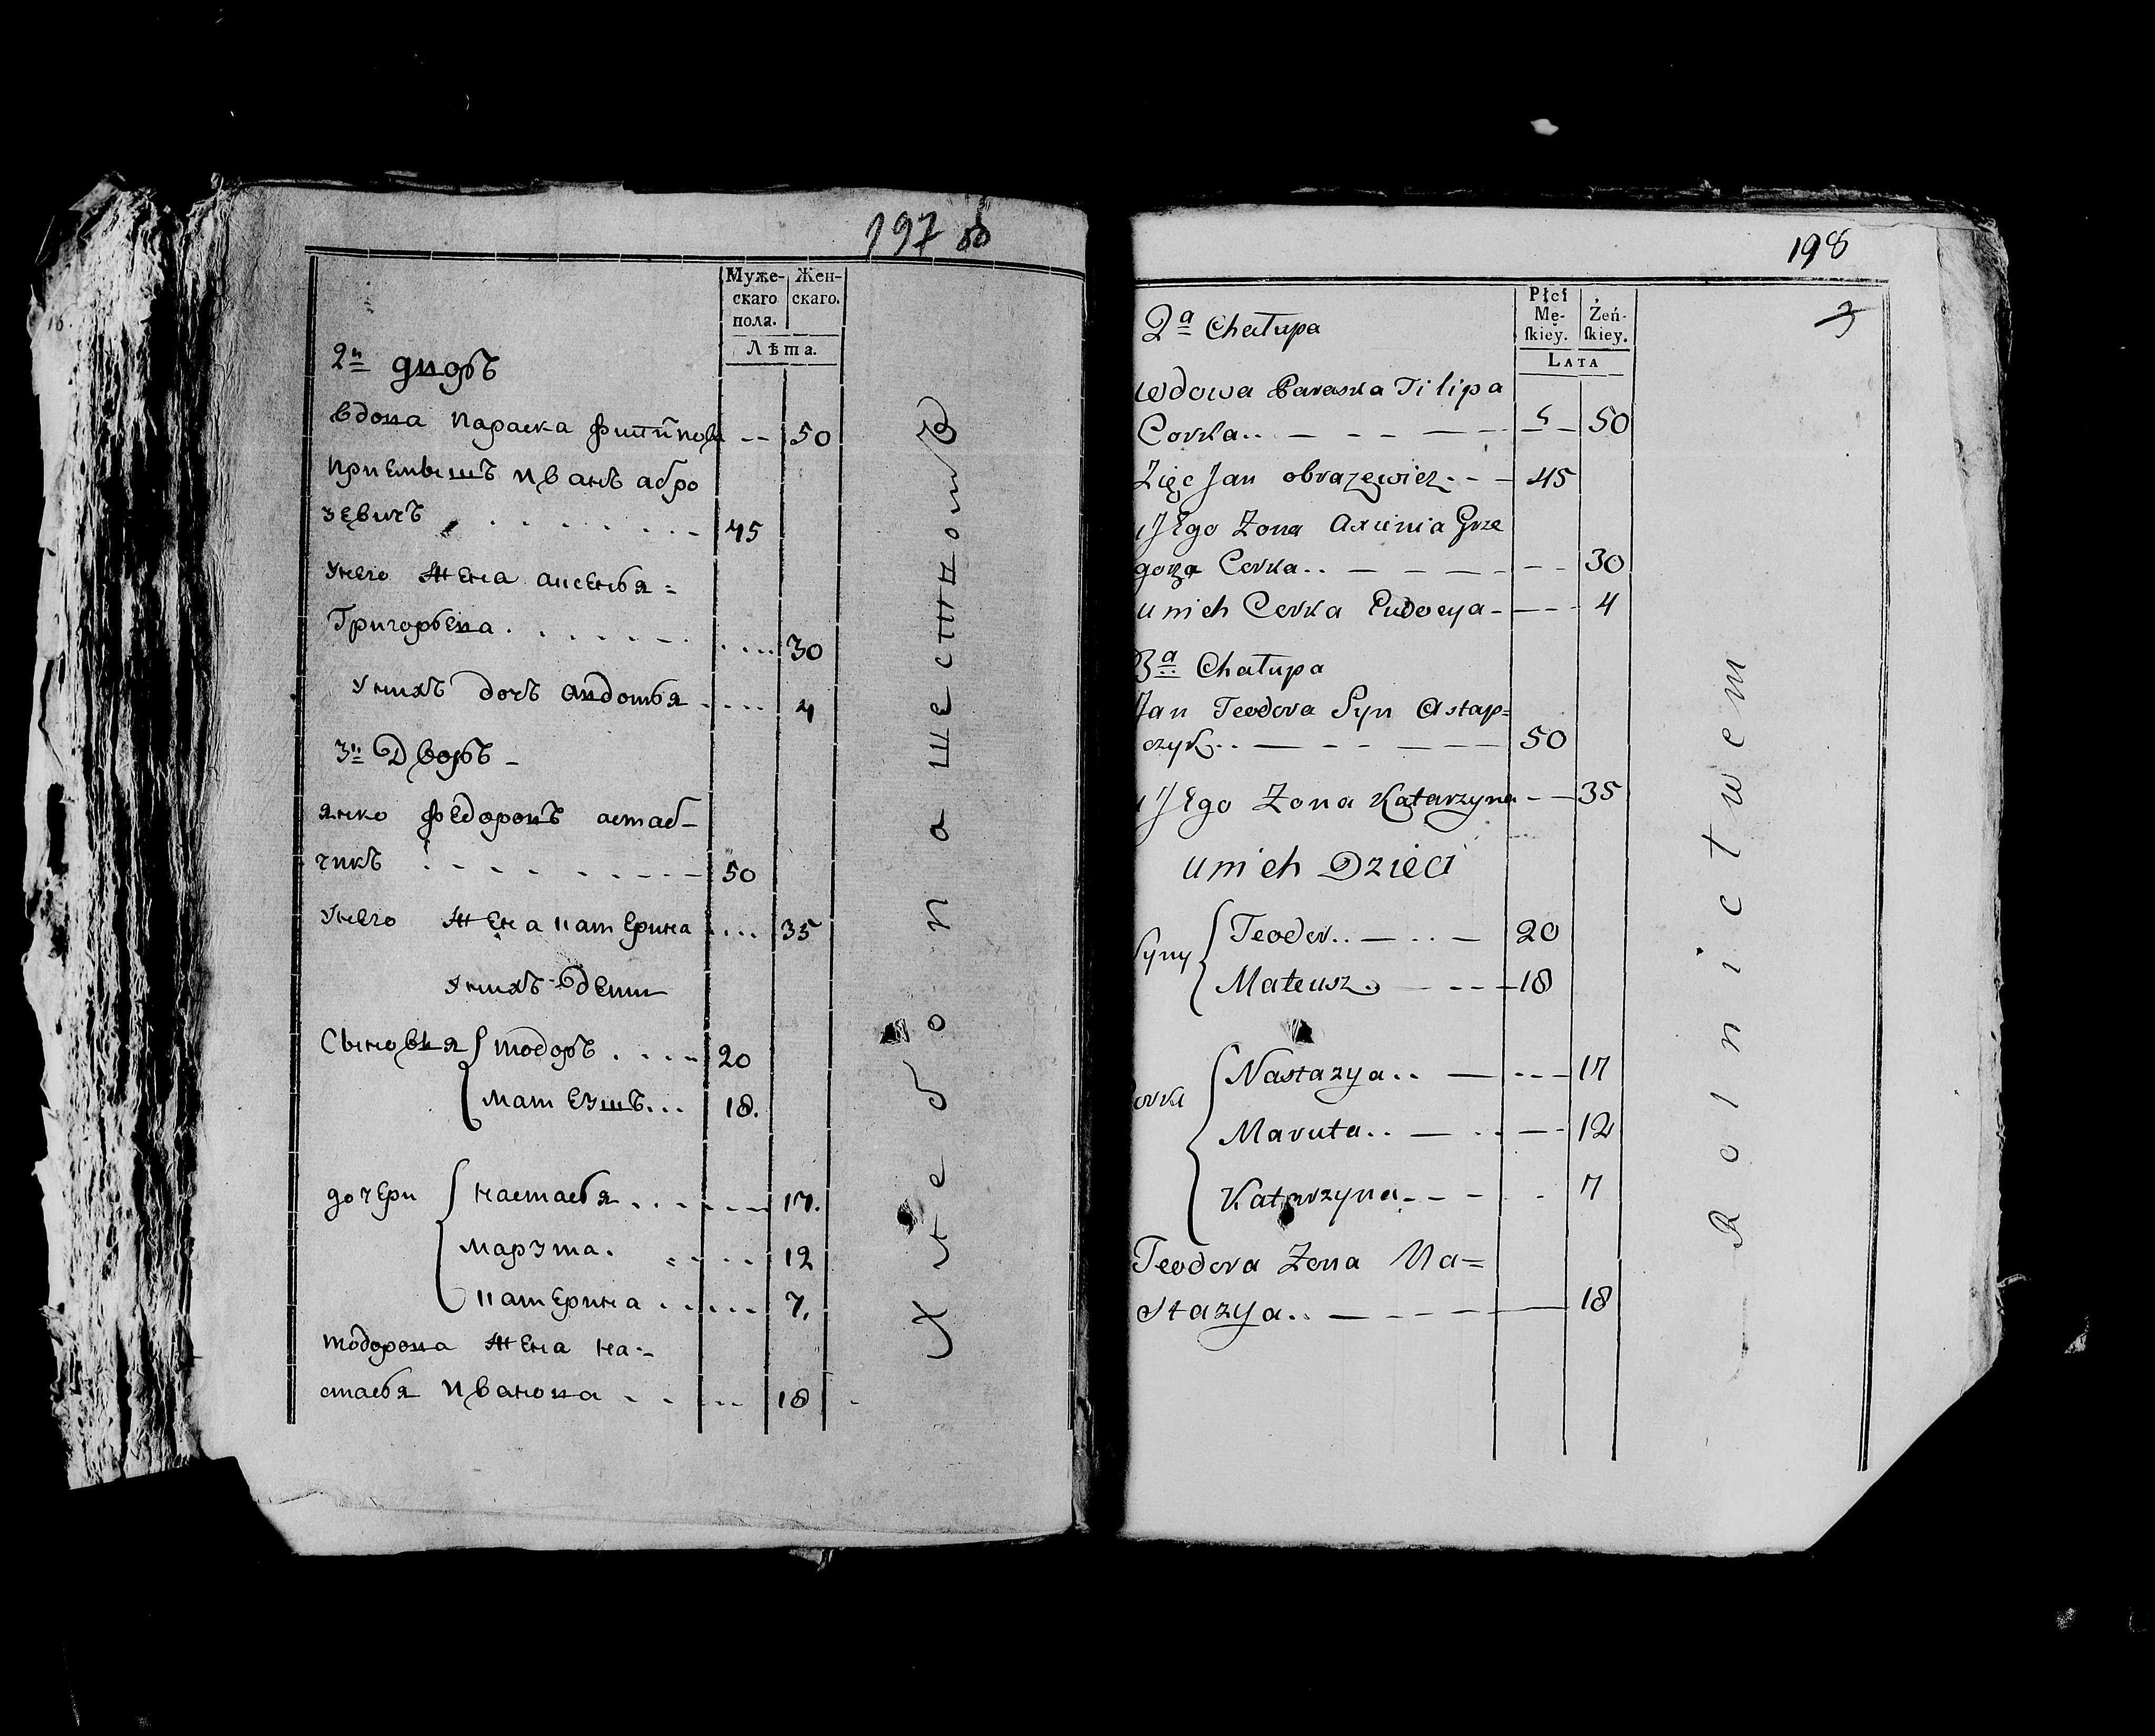 197 об
Муже-
скаго
пола.
Жен-
скаго.
Лѣта.
2й дворъ
Вдова Параска Филипова -- 50
Приемышъ Иванъ абро
зевичъ 45
Унего жена аксенья =
Григорьева 30
Унихъ дочъ авдотья 4
3й Дворъ -
янко Федоровъ астаб-
чикъ 50
Унего жена катерина 35
Унихъ дети
Сыновья тодоръ 20
матеушъ 18.
дочери настасья 17.
марута. 12
катерина 7.
тодорова жена на-
стасья Иванова 18
Хлебопашествомъ
198
3
Płci
Mę-
skiey.
Żeń-
skiey.
LATA
2a Chałupa
Wdowa Paraska Filipa
Corka 50
Zięc Jan obrazewicz 45
Jego Zona Axinia Grze
gorza Corka 30
u nich Corka Eudocya 4
3a Chałupa
Jan Teodora Syn Astap=
czyk 50
Jego Zona Katarzyna 35
u nich Dzieci
Syny Teodor 20
Mateusz 18
Corki Nastazya 17
Maruta 12
Katarzyna 7
Teodora Zona Na=
stazya 18
Rolnictwem